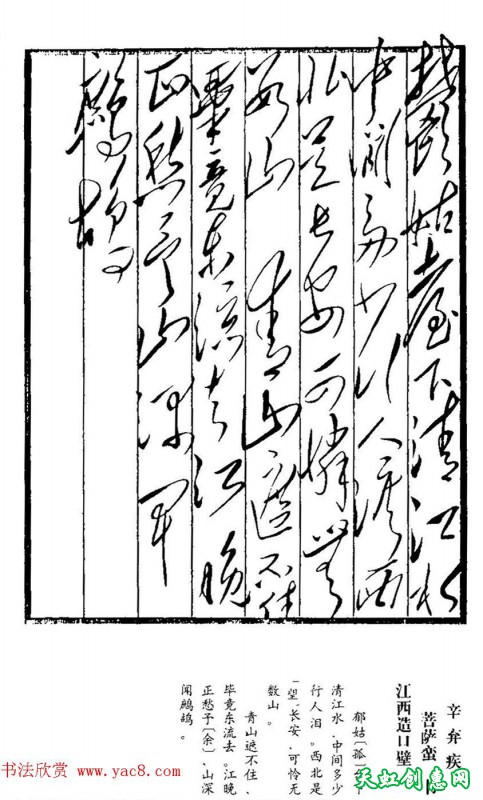 鬱姑臺下清江水
中間多少行人淚西
北是長安可憐無
數山 青山遮不住
畢竟東流去江晚
正愁予山深聞
鷓鴣
辛弃疾
菩萨蛮
江西造口壁
郁姑[孤]
清江水,中间多少
行人泪。西北是
[望]长安,可怜无
数山。
青山遮不住,
毕竟东流去。江晚
正愁予[余],山深
闻鹧鸪。
书法欣赏 www.yac8.com
天虹创意网